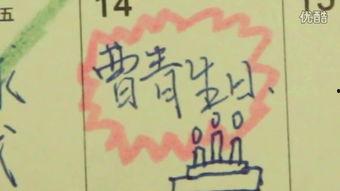 五
14
15
优酷
曹青生日